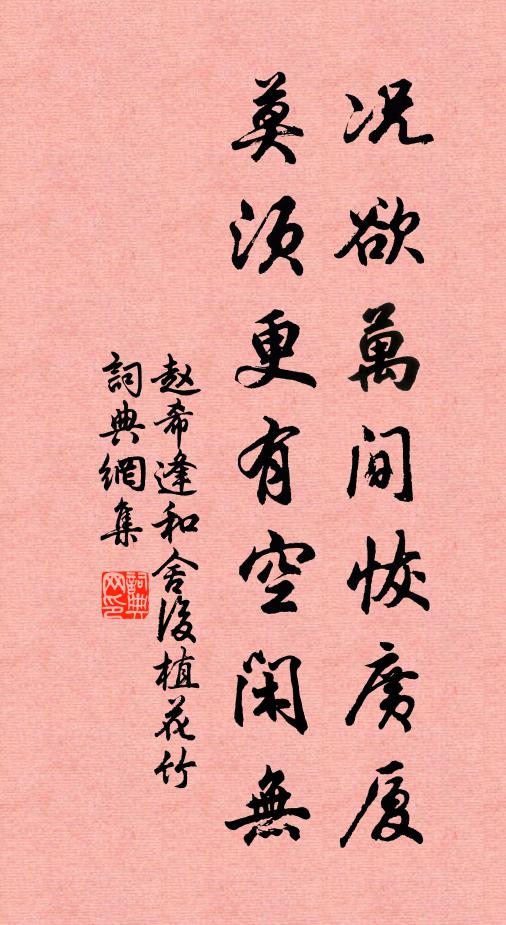 况欲萬間恢廣厦
莫須更有空閑無
赵希逢和舍後植花竹
詞典網集
詞典網印